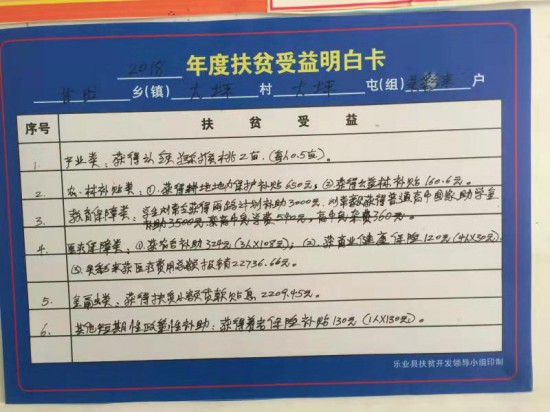 2018 年度扶贫受益明白卡
乡(镇) 大坪 村 大坪 屯(组) 户
序号 扶贫受益
1. 产业类：获得 猕猴桃2亩.(每人0.5亩).
2. 农、林补贴类：①.获得耕地地力保护补贴630元；②.获得公益林补贴160.6元.
3. 教育保障类：学生 获得雨露计划补助3000元. 获得普通高中国家助学金
补助3500元. 高中免学费540元，高中免 费360元.
4. 医疗保障类：①. 补助324元(3人X108元)；②. 健康保险120元(4人X30元)
③. 医疗费用总额报销22736.66元.
5. 金融类：获得扶贫小额贷款贴息2209.45元.
6. 其他短期性政策性补助：获得养老保险补贴130元(1人X130元).
乐业县扶贫开发领导小组印制